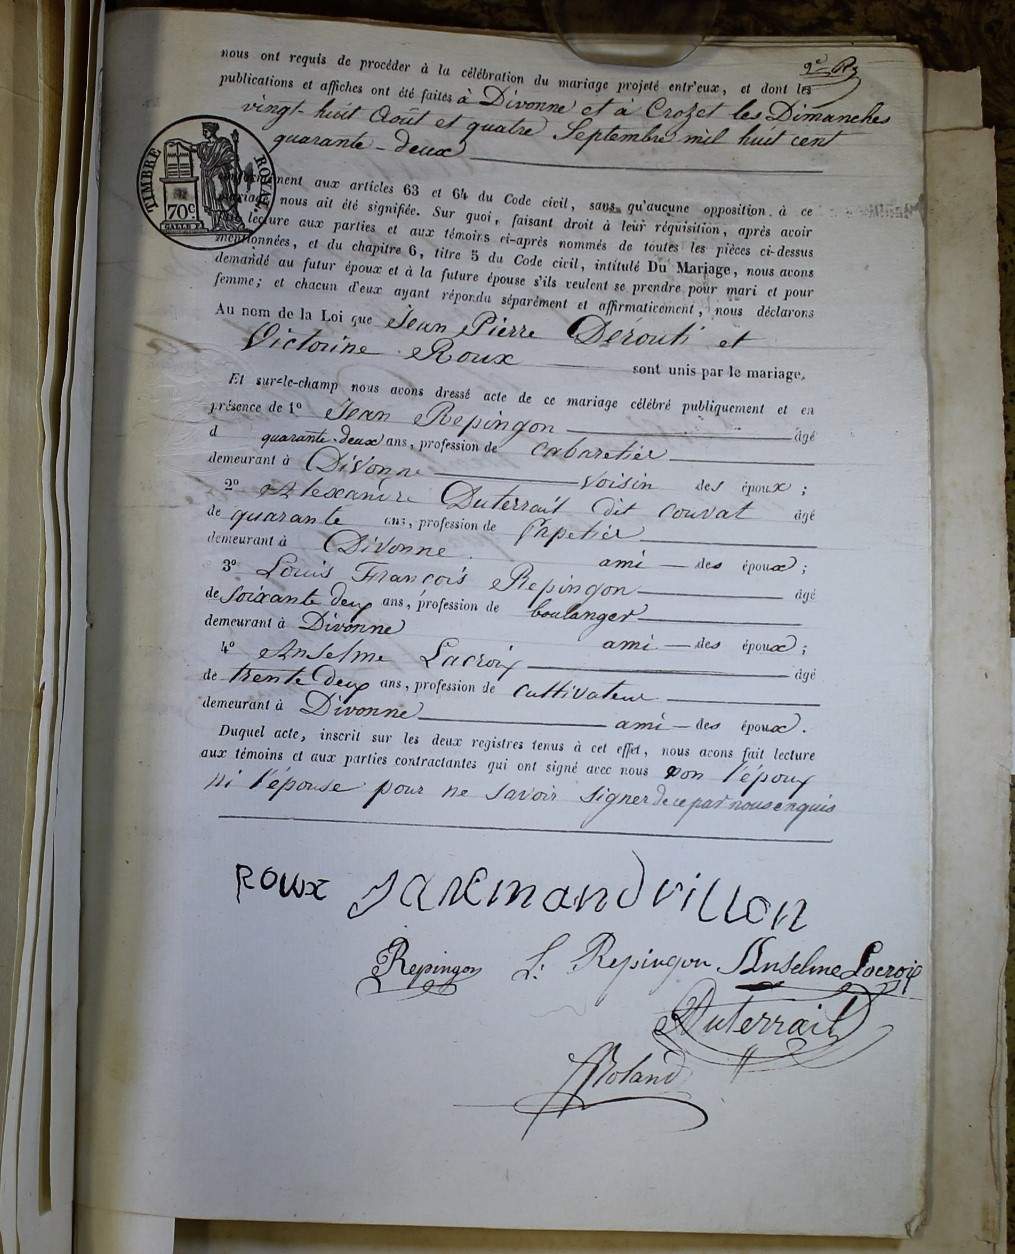 2e Rg
nous ont requis de procéder à la célébration du mariage projeté entr'eux, et dont les
publications et affiches ont été faites à Divonne et à Crozet les Dimanches
vingt-huit Août et quatre Septembre mil huit cent
quarante-deux
TIMBRE ROYAL.
70c
nent aux articles 63 et 64 du Code civil, sans qu'aucune opposition à ce
mariage nous ait été signifiée. Sur quoi, faisant droit à leur réquisition, après avoir
lecture aux parties et aux témoins ci-après nommés de toutes les pièces ci-dessus
mentionnées, et du chapitre 6, titre 5 du Code civil, intitulé Du Mariage, nous avons
demandé au futur époux et à la future épouse s'ils veulent se prendre pour mari et pour
femme; et chacun d'eux ayant répondu séparément et affirmativement, nous déclarons
Au nom de la Loi que Jean Pierre Dérouti et
Victorine Roux sont unis par le mariage.
Et sur-le-champ nous avons dressé acte de ce mariage célébré publiquement et en
présence de 1° Jean Repingon âgé
d quarante-deux ans, profession de cabaretier
demeurant à Divonne voisin des époux;
2° Alexandre Duterrail dit Couvat âgé
de quarante ans, profession de Papetier
demeurant à Divonne. ami des époux;
3° Louis François Repingon âgé
de soixante deux ans, profession de boulanger
demeurant à Divonne ami des époux;
4° Anselme Lacroix âgé
de trente deux ans, profession de cultivateur
demeurant à Divonne ami des époux.
Duquel acte, inscrit sur les deux registres tenus à cet effet, nous avons fait lecture
aux témoins et aux parties contractantes qui ont signé avec nous non l'époux
ni l'épouse pour ne savoir signer de ce par nous enquis
Roux Jaremandvillon
Repingon L. Repingon Anselme Lacroix
Duterrail
Roland